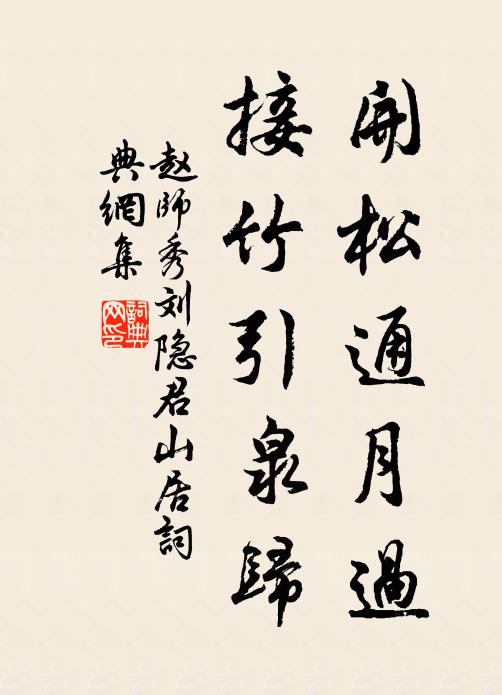 開松通月過
接竹引泉歸
赵師秀刘隐君山居詞
典網集
詞典網印